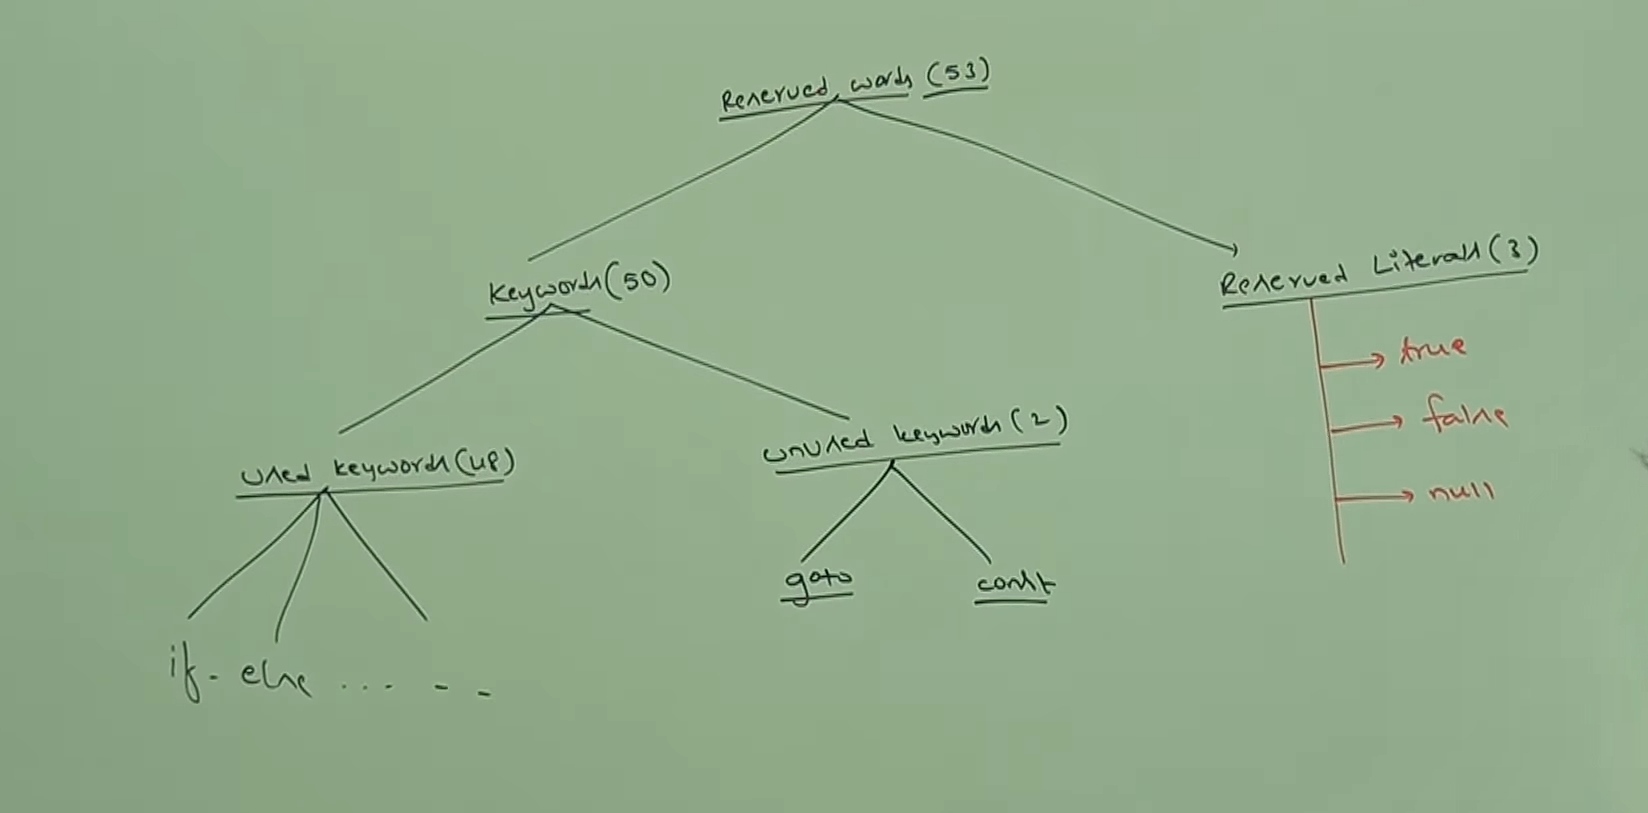 Reserved words (53)
Keywords (50)
Reserved Literals (3)
true
false
null
used keywords (48)
unused keywords (2)
goto
const
if - else ... - -